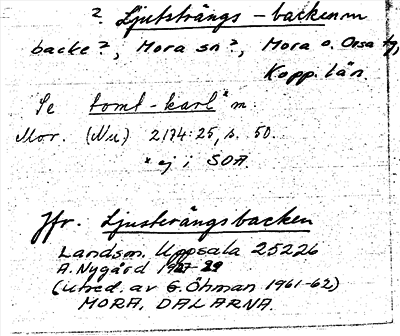 ? Ljutsträngs-backen m
backe?, Mora sn?, Mora o. Orsa tg,
Kopp. län.
Se tomt-karl* m.
Mor. (Nu) 2174:25, s. 50.
* ej i SOA.
Jfr. Ljusterängsbacken
Landsm. Uppsala 25226
A. Nygård 1927-29
(utred. av G. Öhman 1961-62)
MORA, DALARNA.